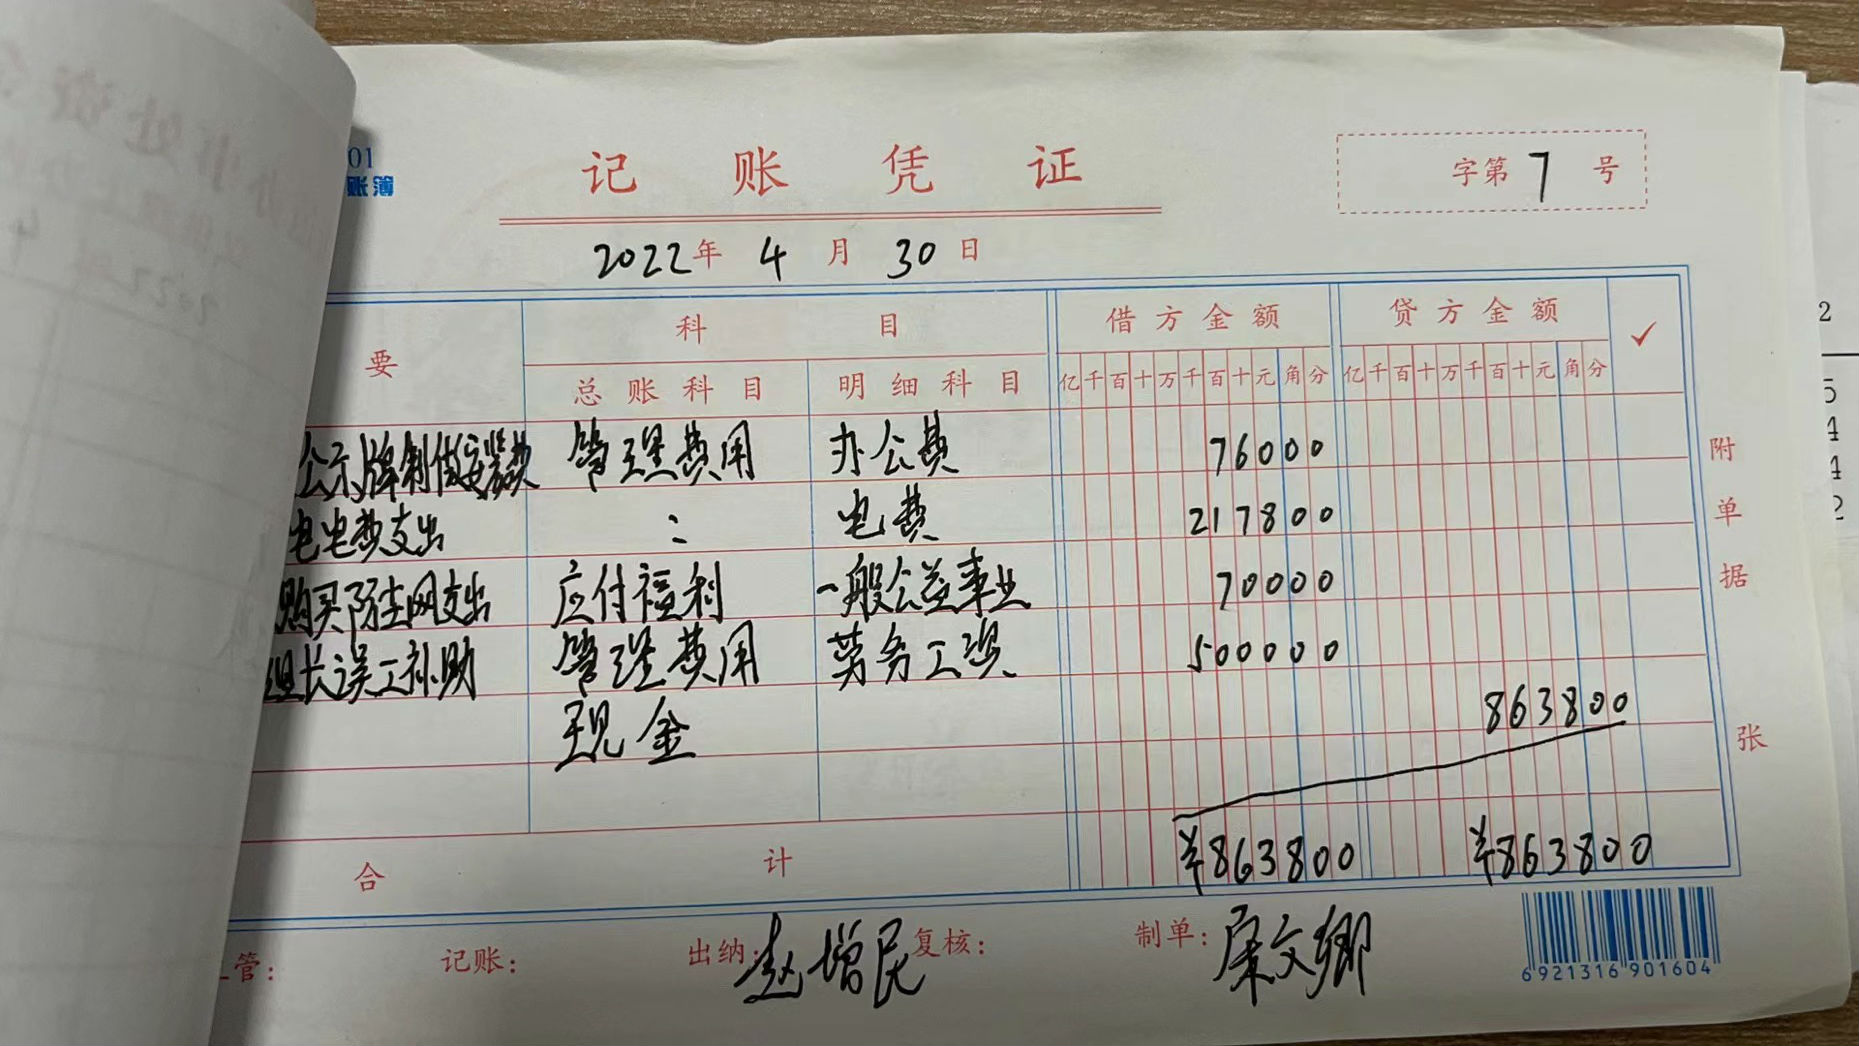 01
账簿
记账凭证
字第 7 号
2022年 4 月 30 日
要 科目 借方金额 贷方金额 ✓
总账科目 明细科目 亿千百十万千百十元角分 亿千百十万千百十元角分
公示牌制做安装费 管理费用 办公费 76000
电电费支出 : 电费 217800
购买防尘网支出 应付福利 一般公益事业 70000
组长误工补助 管理费用 劳务工资 500000
现金 863800
合计 ¥863800 ¥863800
附单据 张
管: 记账: 出纳: 赵增民 复核: 制单:
6921316901604